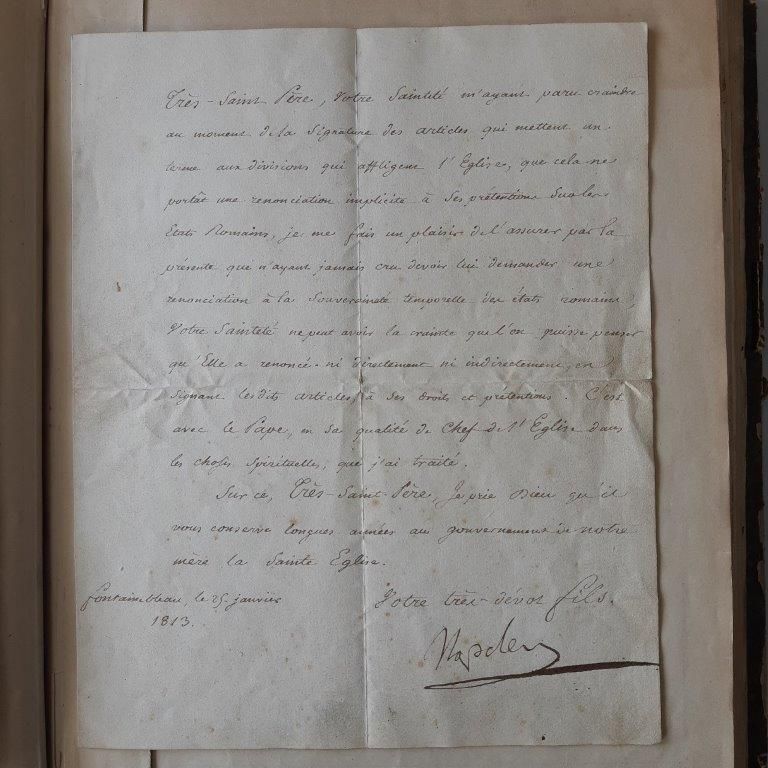 Très-Saint Père, Votre Sainteté m'ayant paru craindre
au moment de la Signature des articles qui mettent un
terme aux divisions qui affligent l'Eglise, que cela ne
portât une renonciation implicite à Ses prétentions Sur les
Etats Romains, je me fais un plaisir de l'assurer par la
présente que n'ayant jamais cru devoir lui demander une
renonciation à la Souveraineté temporelle des états romains,
Votre Sainteté ne peut avoir la crainte que l'on puisse penser
qu'Elle a renoncé ni directement ni indirectement, en
Signant lesdits articles, à Ses droits et prétentions. C'est
avec le Pape, en sa qualité de Chef de l'Eglise dans
les choses Spirituelles, que j'ai traité.
Sur ce, Très-Saint-Père, Je prie Dieu qu'il
vous conserve longues années au gouvernement de notre
mère la Sainte Eglise.
fontainebleau, le 25 janvier
1813.
Votre très-dévot fils.
Napoleon